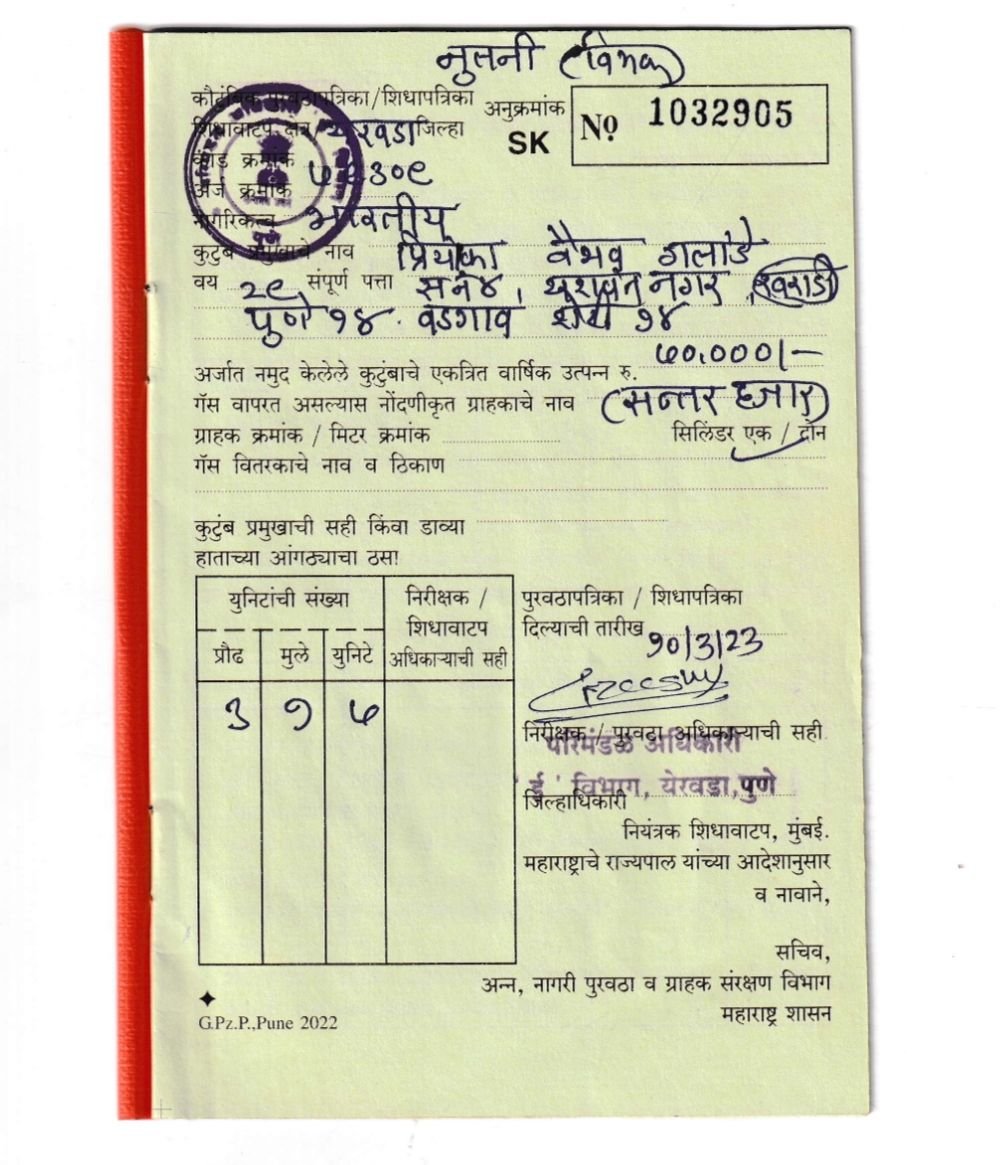 नुतनी (विभक्त)
कौटुंबिक पुरवठापत्रिका/शिधापत्रिका अनुक्रमांक
शिधावाटप क्षेत्र येरवडा जिल्हा SK No 1032905
कार्ड क्रमांक
अर्ज क्रमांक
नागरिकत्व भारतीय
कुटुंब प्रमुखाचे नाव प्रियांका वैभव गलांडे
वय २९ संपूर्ण पत्ता सनं ४, यशवंत नगर, खराडी
पुणे १४. वडगाव शेरी १४
अर्जात नमुद केलेले कुटुंबाचे एकत्रित वार्षिक उत्पन्न रु. ७०,०००/-
गॅस वापरत असल्यास नोंदणीकृत ग्राहकाचे नाव (सत्तर हजार)
ग्राहक क्रमांक / मिटर क्रमांक सिलिंडर एक / दोन
गॅस वितरकाचे नाव व ठिकाण
कुटुंब प्रमुखाची सही किंवा डाव्या
हाताच्या आंगठ्याचा ठसा
युनिटांची संख्या
प्रौढ मुले युनिटे
निरीक्षक /
शिधावाटप
अधिकाऱ्याची सही
३ १ ७
पुरवठापत्रिका / शिधापत्रिका
दिल्याची तारीख १०/3/23
निरीक्षक / पुरवठा अधिकाऱ्याची सही
परिमंडळ अधिकारी
'ई' विभाग, येरवडा, पुणे
जिल्हाधिकारी
नियंत्रक शिधावाटप, मुंबई.
महाराष्ट्राचे राज्यपाल यांच्या आदेशानुसार
व नावाने,
सचिव,
अन्न, नागरी पुरवठा व ग्राहक संरक्षण विभाग
महाराष्ट्र शासन
G.Pz.P.,Pune 2022
पुणे